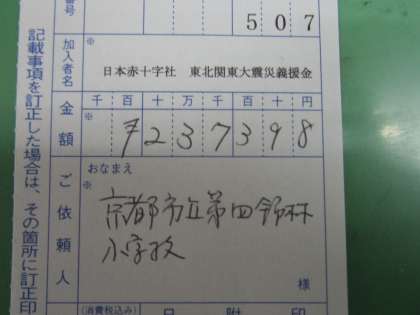 番号
507
加入者名
※
日本赤十字社 東北関東大震災義援金
金額
千百十万千百十円
※
¥237398
ご依頼人
おなまえ
※
京都市立第四錦林
小学校
様
(消費税込み)
日 附 印
記載事項を訂正した場合は、その箇所に訂正印